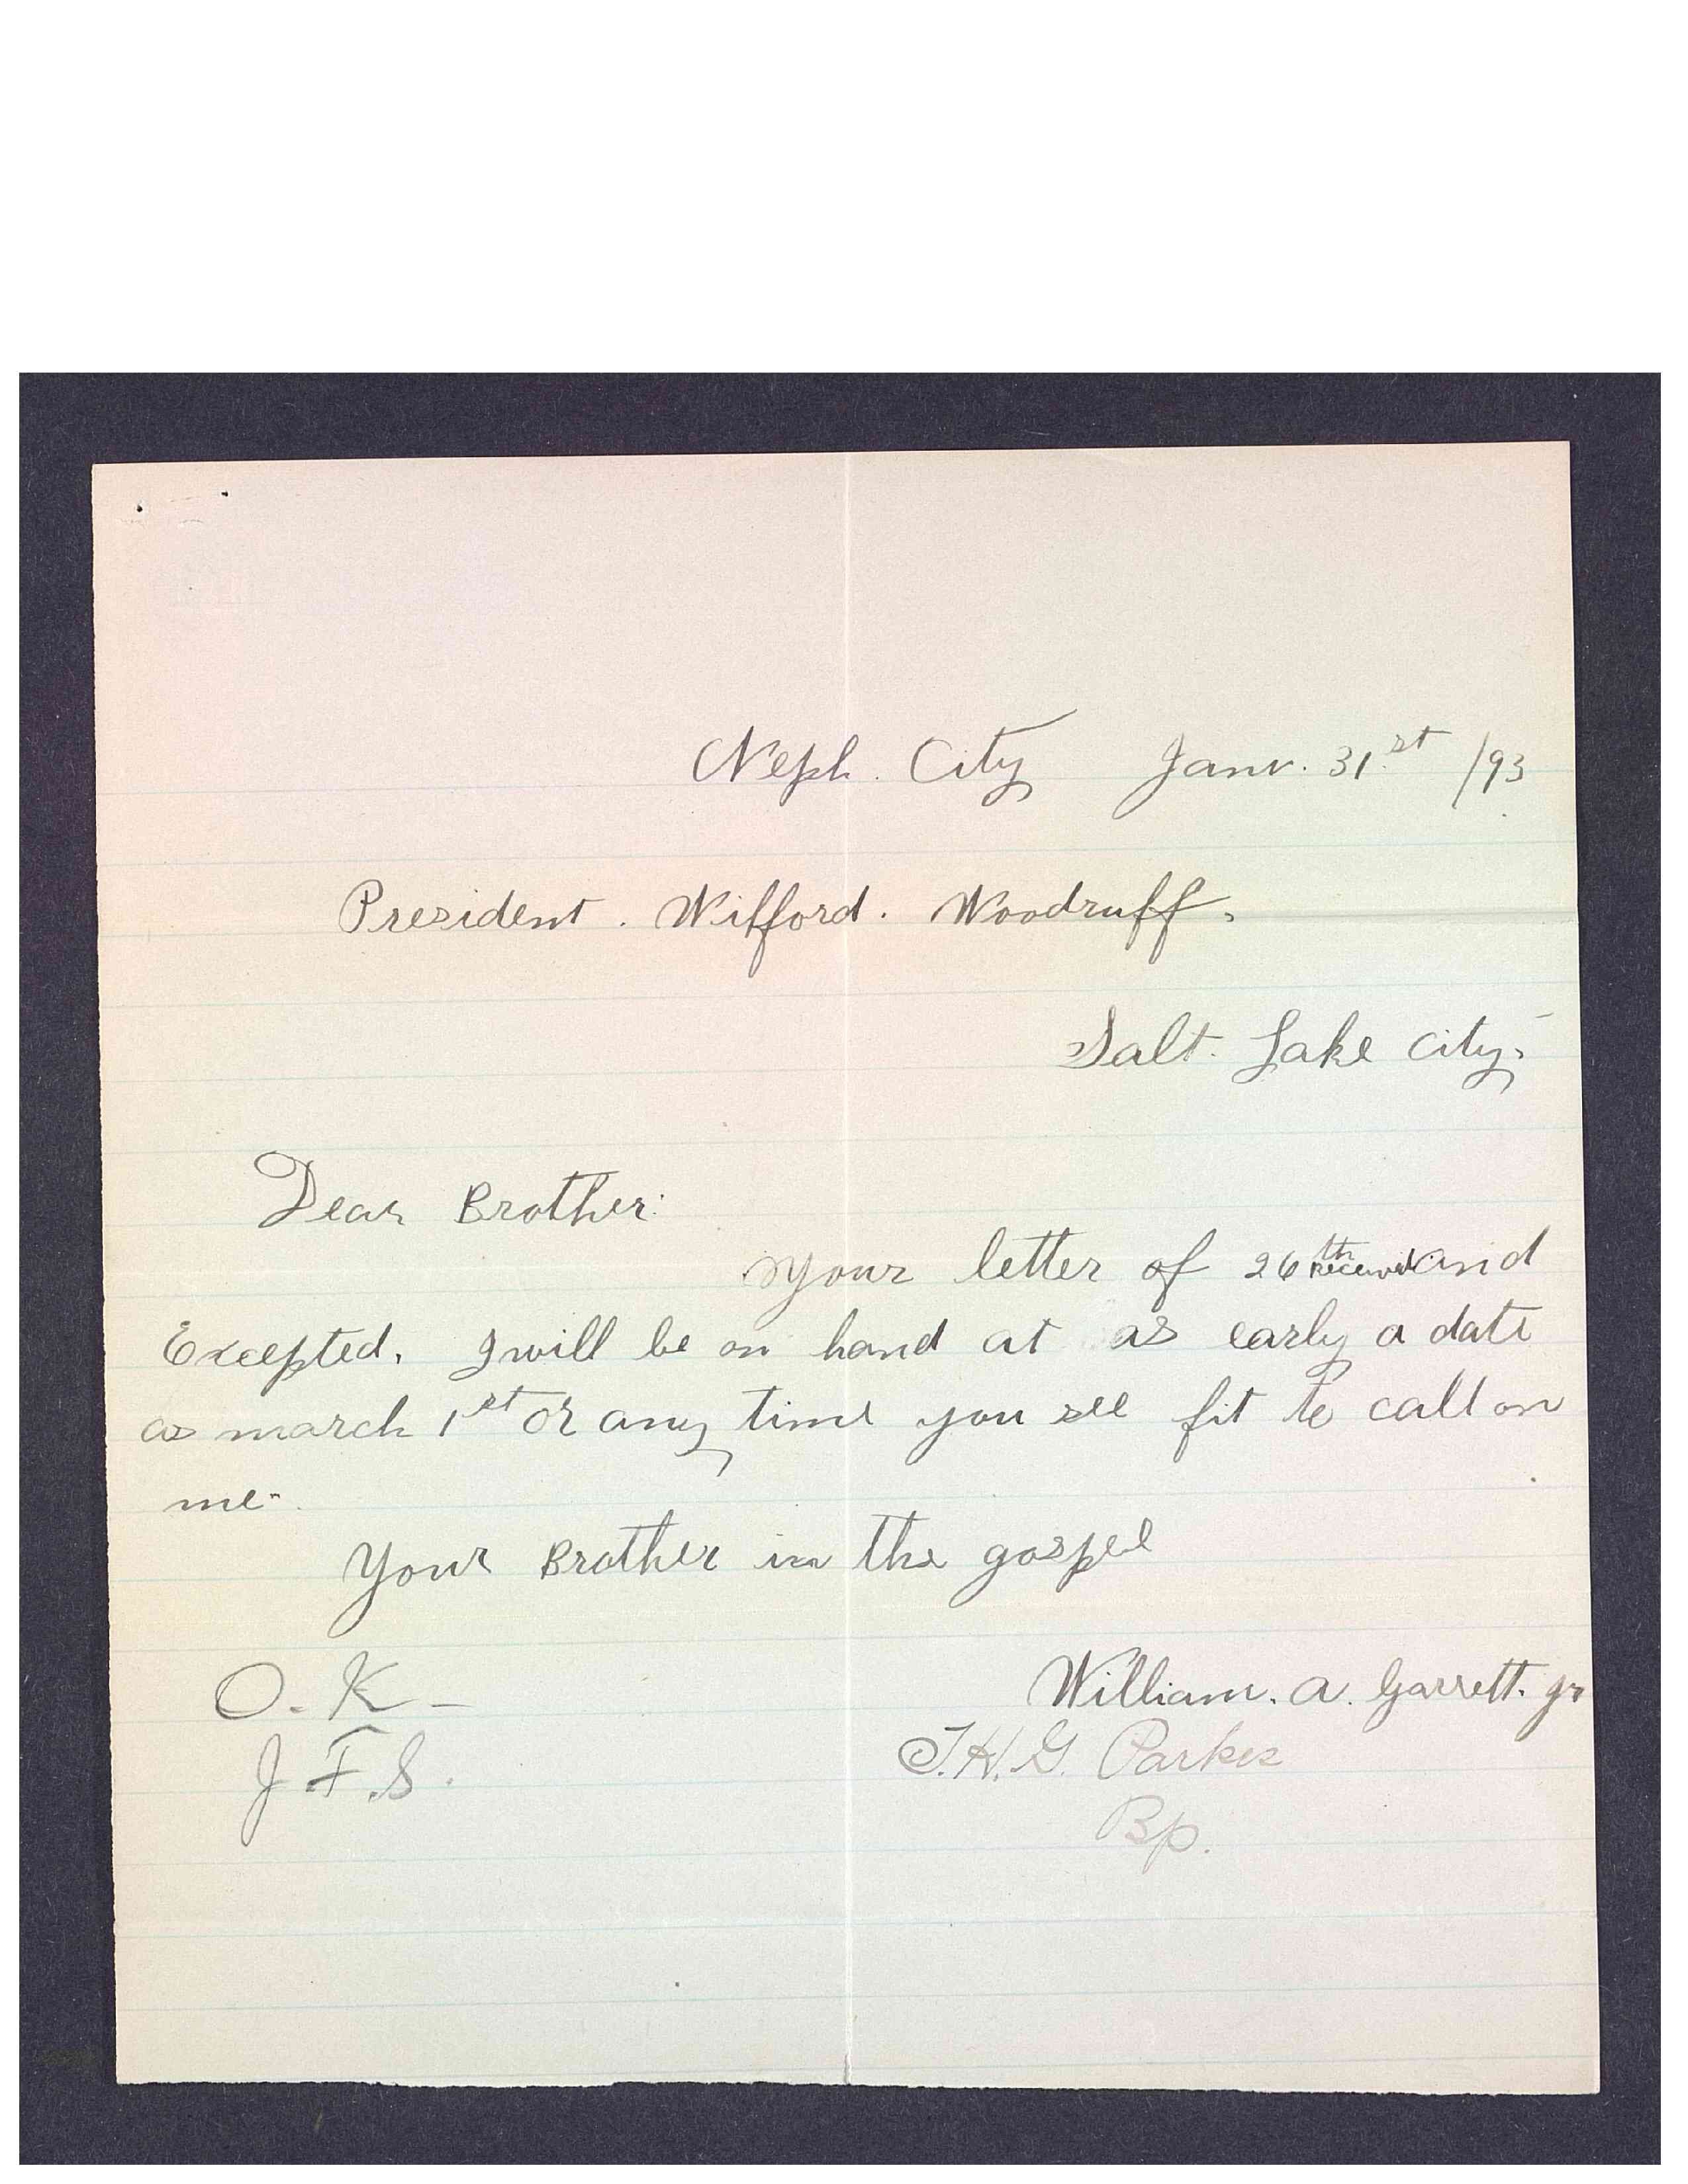 Neph. City Janr. 31st /93
President. Wifford. Woodruff.
Salt. Lake City.
Dear Brother:
Your letter of 26th received and
Excepted. I will be on hand at as early a date
as march 1st or any time you see fit to call on
me.
Your Brother in the gospel
William. A. Garrett. Jr
O. K –
J. F. S.
T. H. G. Parkes
Bp.